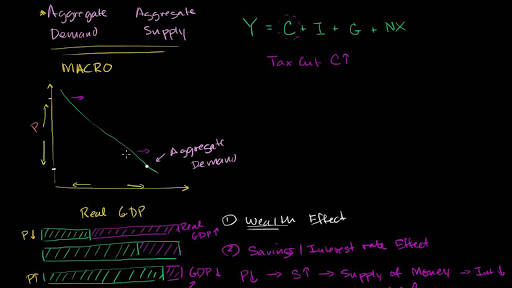 *Aggregate Demand
Aggregate Supply
MACRO
Y = C + I + G + NX
Tax Cut C↑
P
Aggregate Demand
Real GDP
P↓
Real GDP↑
P↑
GDP↓
① Wealth Effect
② Savings / Interest rate Effect
P↓ → S↑ → Supply of Money → Int↓